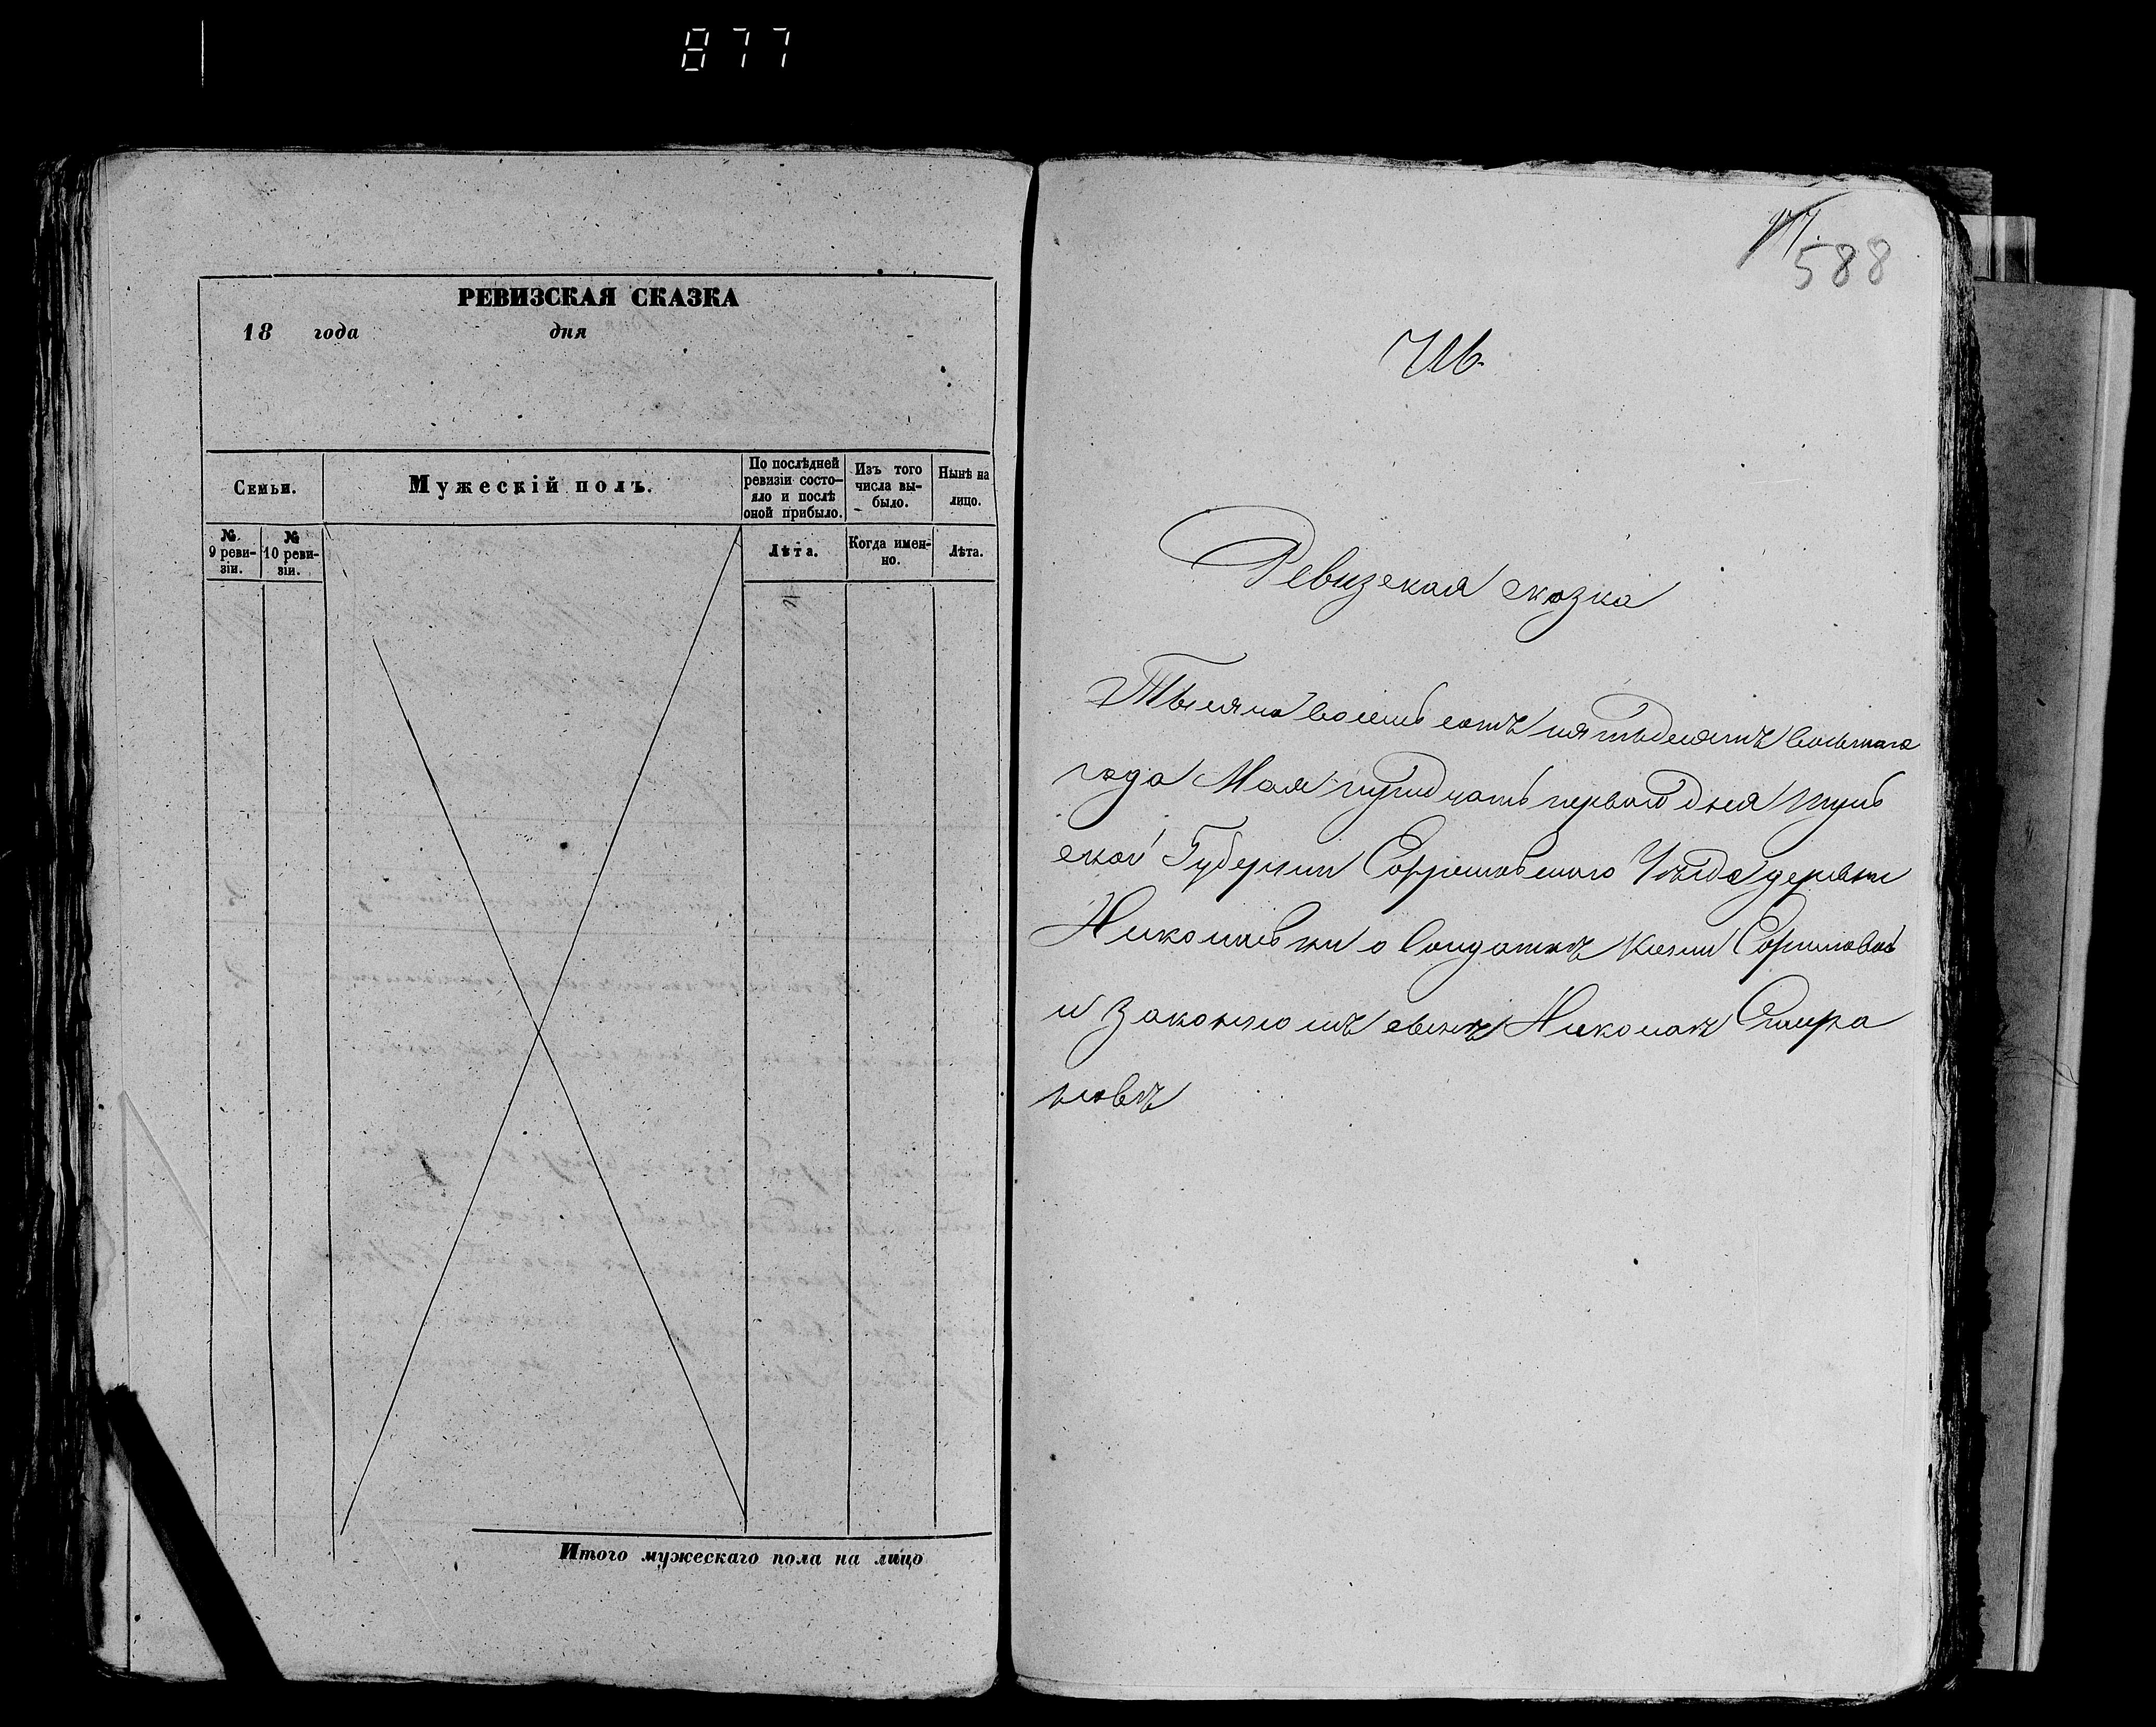 877
РЕВИЗСКАЯ СКАЗКА
18 года дня
Семьи.
Мужескій полъ.
По послѣдней ревизіи состо-
яло и послѣ
оной прибыло.
Изъ того
числа вы-
было.
Нынѣ на
лицо.
№
9 реви-
зіи.
№
10 реви-
зіи.
Лѣта.
Когда имен-
но.
Лѣта.
Итого мужескаго пола на лицо
588
716
Ревизская сказка
Тысяча восемь сотъ пятьдесятъ восьмаго
года Мая тридцать перваго дня
ской Губерніи Уѣзда деревни
Николаевки о Солдаткѣ
и законномъ сынѣ Николаѣ
новѣ